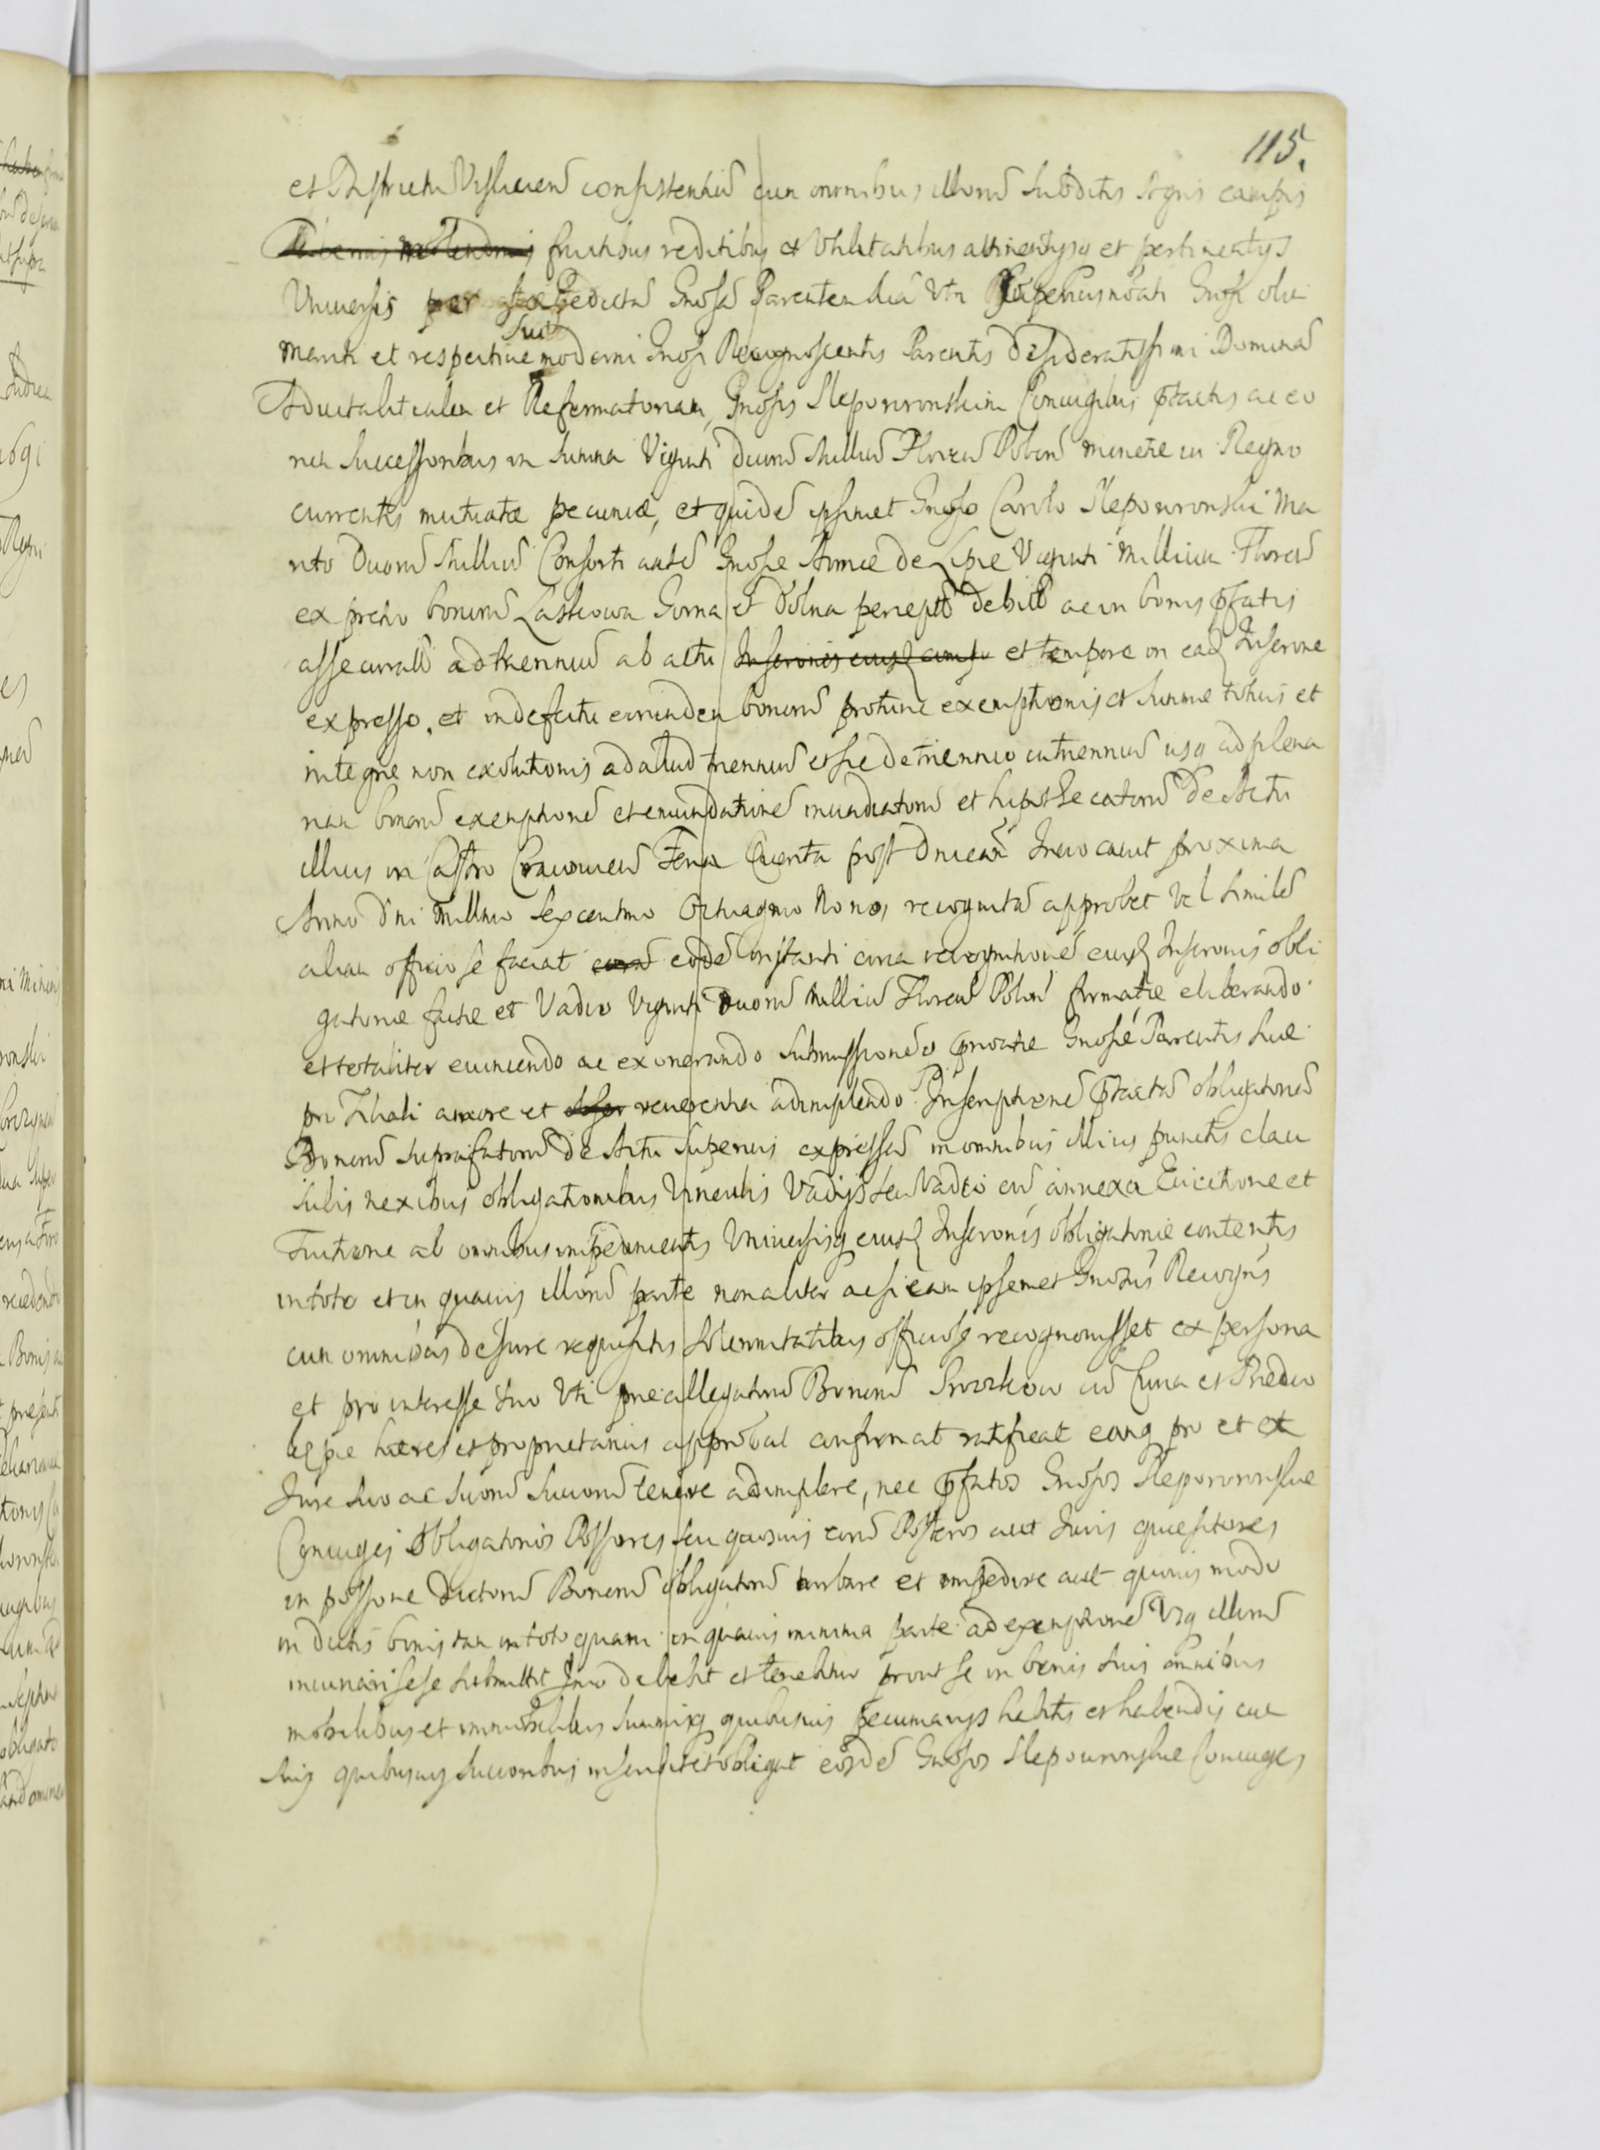 115.
et Districtu Vislicien consistentium cum omnibus illorum subditis Agris campis
fructibus reditibus et Vtilitatibus attinentysq et pertinentys
Vniversis per Gnosam Parentem suam Vti superius noati Gnosi olim
Mariti et respective suae moderni Gnosi Recognoscentis Parentis desideratissimi Dominam
Advitalitialem et Reformatoriam, Gnosis Slepowronskim Coniugibus pfactis ac eo
rum Successoribus in summa Viginti duorum Millium Floren Polon monete in Regno
currentis mutuatae pecuniae, et quidem ipsimet Gnoso Carolo Slepowronski Ma
rito duorum Millium Consorti autem Gnose Annae de Lipie Viginti Millium Floren
ex pretio bonorum Laskowa Gorna et Dolna percept debit ac in bonis pfatis
assecurat ad triennium ab actu Inscronis eiusq et tempore in eadq Inscrone
expresso, et in defectu eorundem bonorum protunc exemptionis et summe totius et
integre non exolutionis ad aliud triennium et sic de triennio in triennium usq ad plena
riam bonorum exemptionem et emundationem inundatorum et hipothecatorum de Actu
illius in Castro Cracovien Feria Quarta post Dnicam Invocavit proxima
Anno Dni Millmo Sexcentmo Octuagmo Nono, recognitam approbet vel similem
aliam officiose faciat eodem instanti circa recognitionem eiusq Inscronis obli
gatoriae factae et Vadio Viginti duorum Millium Floren Polon firmatae eliberando
et totaliter evincendo ac exonerando submissioneq privatae Gnosae Parentis suae
pro filiali amore et reverentia adimplendo. Inscriptionem pfactam obligatoriam
Bonorum suprafatorum de Actu superius expressam in omnibus illius punctis clau
sulis nexibus obligationibus Vinculis Vadijs seu Vadio cum annexa Evictione et
Tuitione ab omnibus impedimentis Vniversisq eiusq Inscronis obligatoriae contentis
in toto et in quavis illorum parte non aliter ac si eam ipsemet Gnosus Recogns
cum omnibus de Iure requisitis solennitatibus officiose recognovisset ex persona
et pro interesse suo Vti praeallegatorum Bonorum cum Curia et Praedio
haeres et proprietarius approbat confirmat ratificat eamq pro et ex
Iure suo ac suorum succorum tenere adimplere, nec pfatos Gnosos Slepowronskie
Coniuges Obligatorios Possores seu quosvis eorum Posteros aut Iuris quaesitores
in possone dictorum Bonorum obligatorum turbare et impedire aut quovis modo
in dictis bonis tam in toto quam in quavis minima parte ad exemptionem Vsq illorum
sese submittit Imo debebit et tenebitur prout se in bonis suis omnibus
mobilibus et immobilibus summisq quibusvis pecuniarijs habitis et habendis cum
suis quibusvis succoribus inscribit et obligat eosdem Gnosos Slepowronskie Coniuges